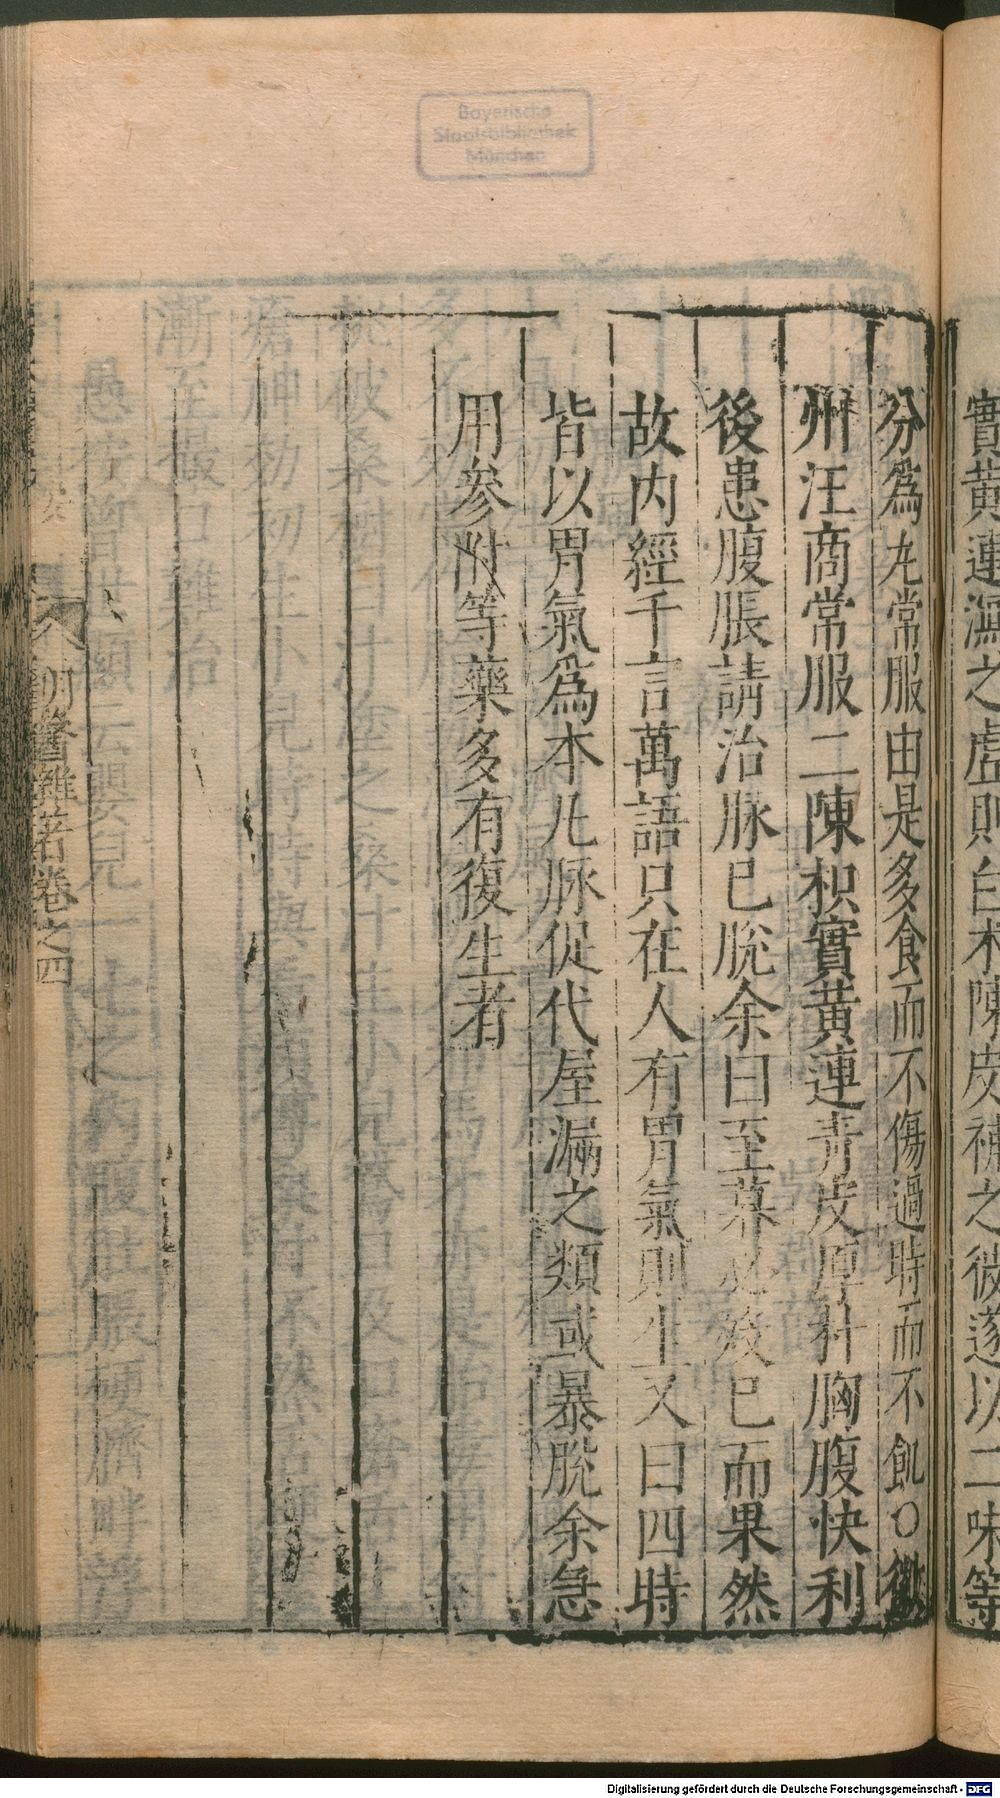 實黃連瀉之虛則白朮陳皮補之後遂以二味等
分爲丸常服由是多食而不傷過時而不飢〇徽
州汪商常服二陳枳實黃連青皮厚朴胸腹快利
後患腹脹請治脉已脫余曰至暮必歿已而果然
故内經千言萬語只在人有胃氣則生又曰四時
皆以胃氣爲本凡脉促代屋漏之類或暴脫余急
用參附等藥多有復生者
明醫雜著卷之四
Bayerische
Staatsbibliothek
München
Digitalisierung gefördert durch die Deutsche Forschungsgemeinschaft - DFG